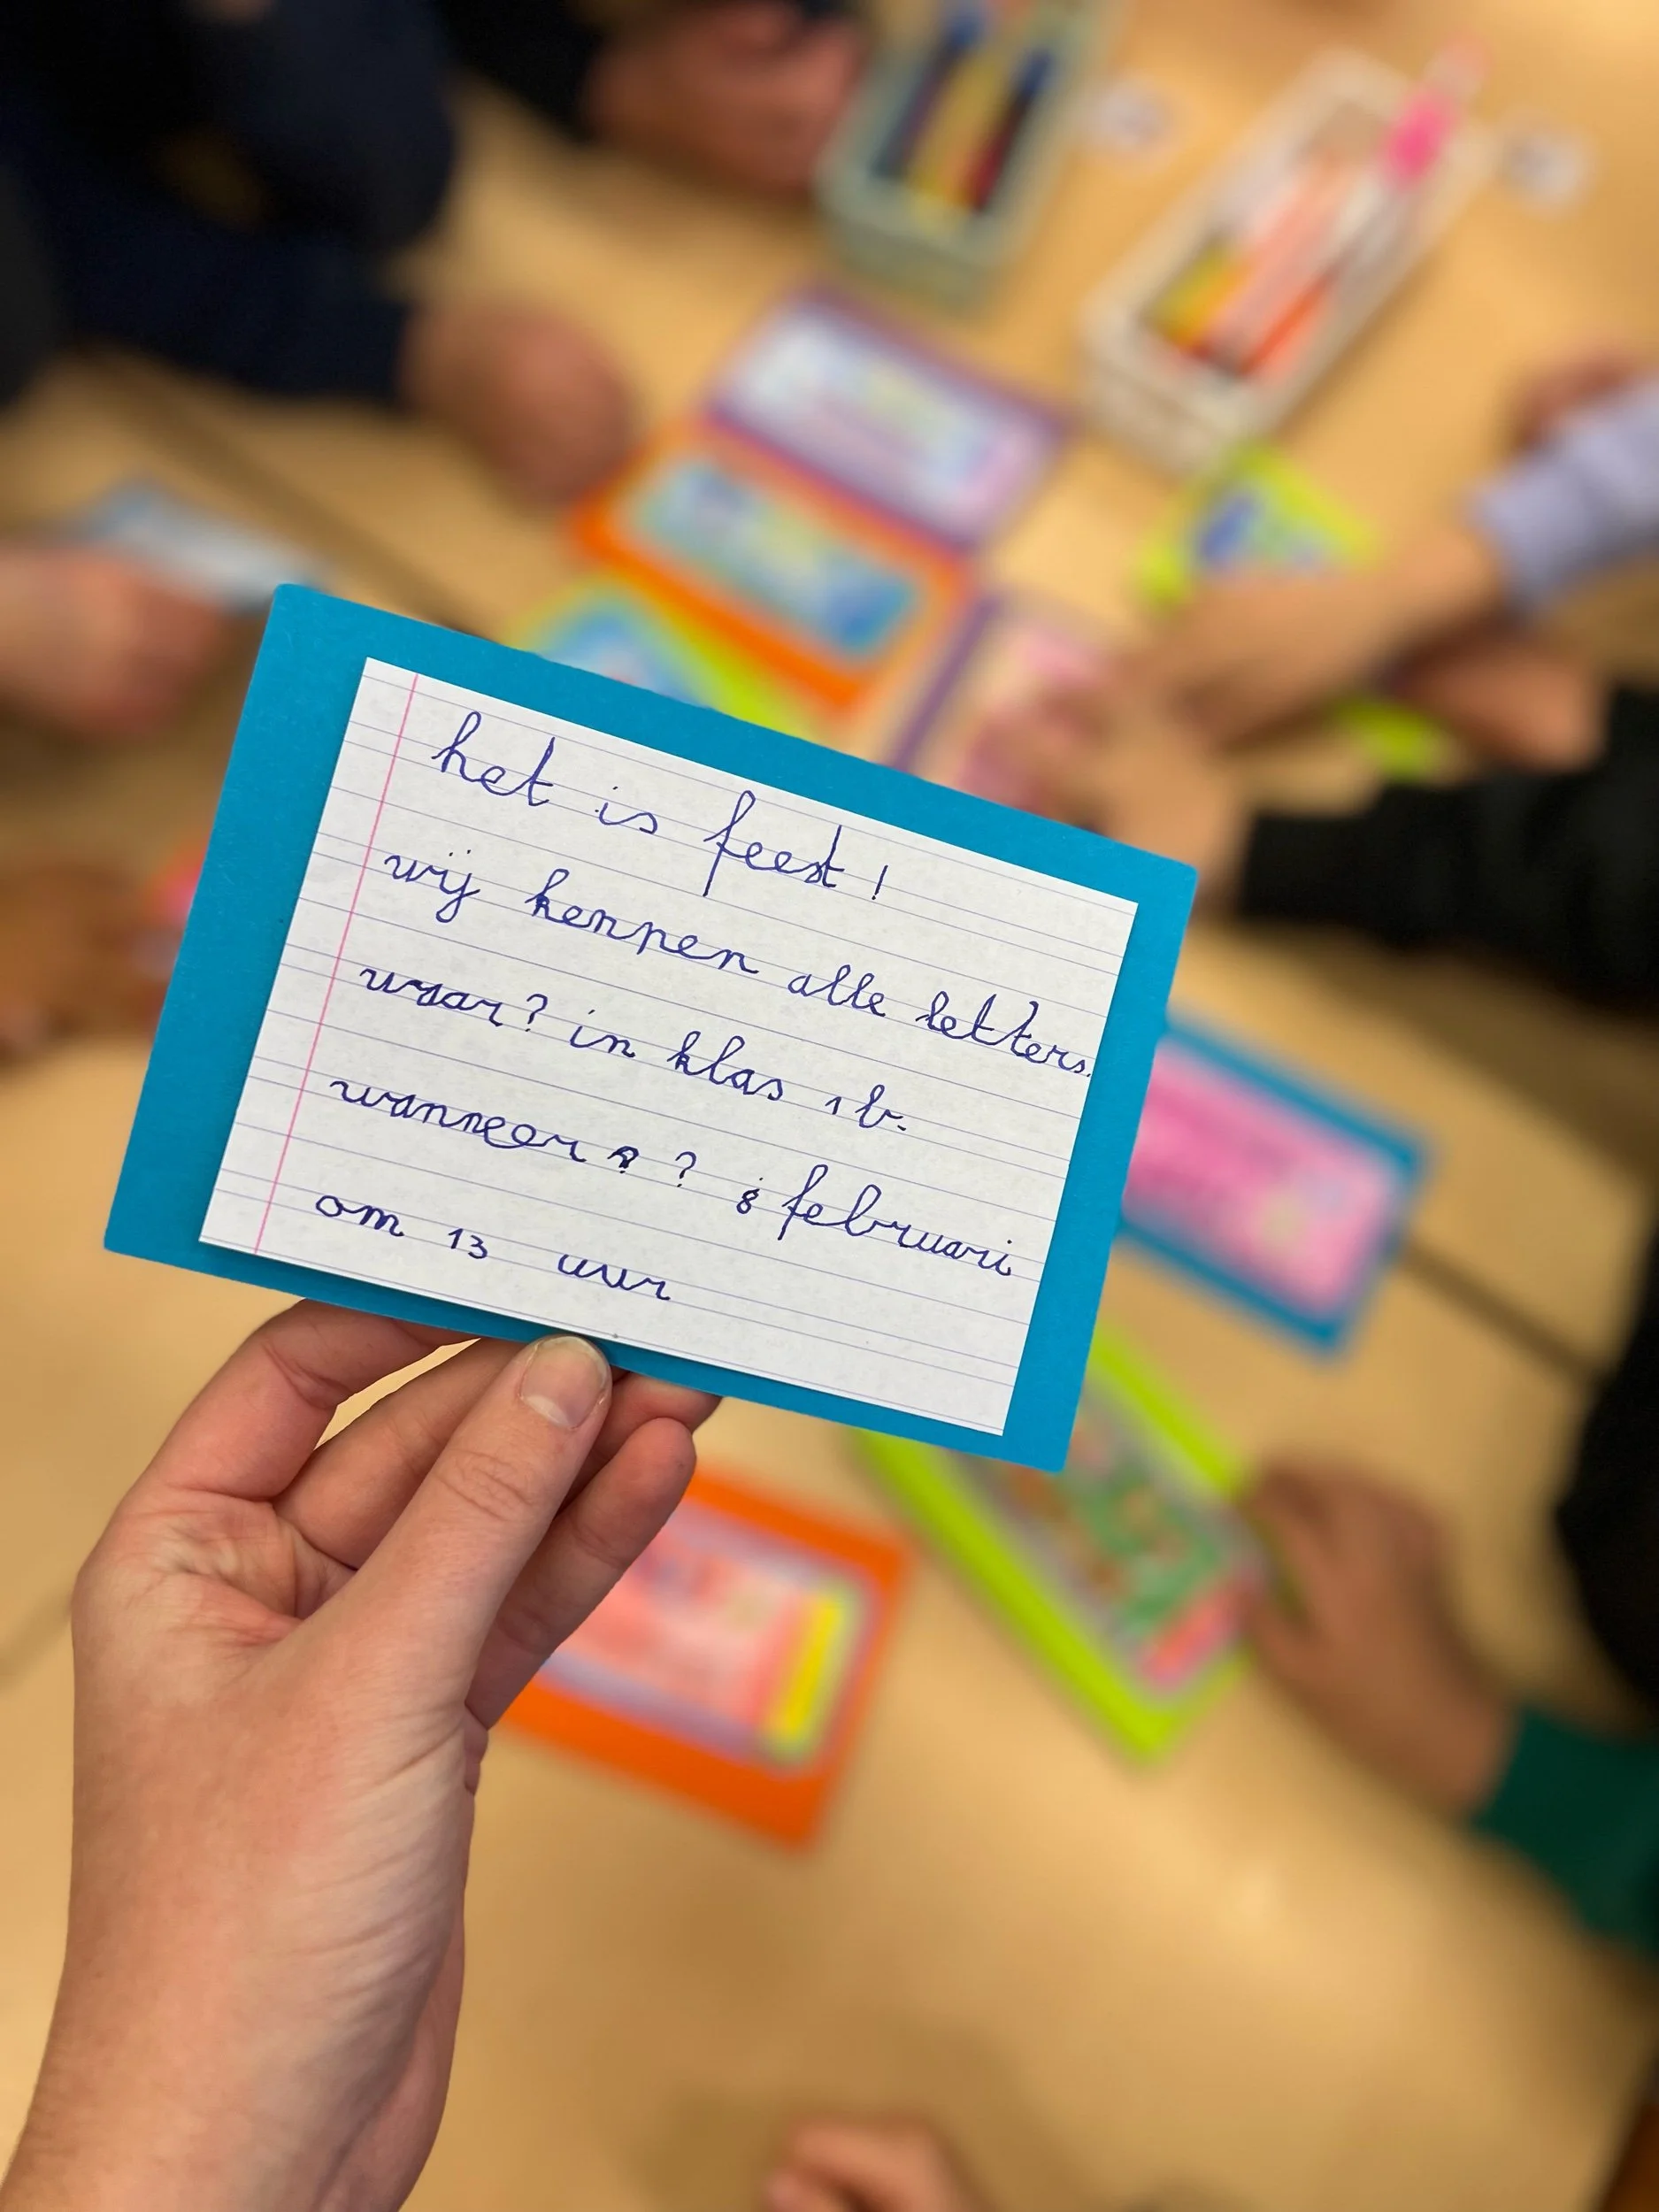 het is feest!
wij kennen alle letters.
waar? in klas 1b.
wanneer ? 8 februari
om 13 uur